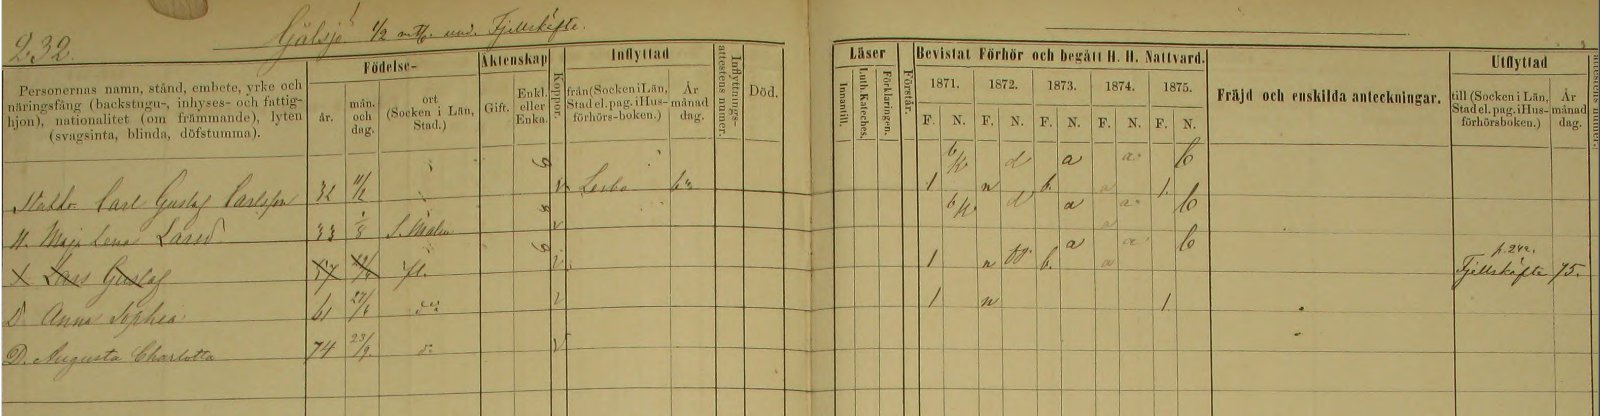 232.
Gälsjö 1/2 mtl. und. Fjellskäfte.
Personernas namn, stånd, embete, yrke och
näringsfång (backstugu-, inhyses- och fattig-
hjon), nationalitet (om främmande), lyten
(svagsinta, blinda, döfstumma).
Födelse-
år.
mån.
och
dag.
ort
(Socken i Län,
Stad.)
Äktenskap
Gift.
Enkl.
eller
Enka.
Koppor.
Inflyttad
från (Socken i Län,
Stad el. pag. i Hus-
förhörs-boken.)
År
månad
dag.
Inflyttnings-
attestens numer.
Död.
Läser
Innantill.
Luth. Kateches.
Förklaringen.
Förstår.
Bevistat Förhör och begått H. H. Nattvard.
1871. 1872. 1873. 1874. 1875.
F. N. F. N. F. N. F. N. F. N.
Fräjd och enskilda anteckningar.
Utflyttad
till (Socken i Län,
Stad el. pag. i Hus-
förhörsboken.)
År
månad
dag.
attestens numer.
Carl Gustaf Carlsson 32 11/2 v Lerbo
H. Maja Lena Larsd 33 S. Malm v
Lars Gustaf 57 fl. v p. 242. Fjellskäfte 75.
D Anna Sophia 61 27/6 do v
D. Augusta Charlotta 74 23/9 d:o v